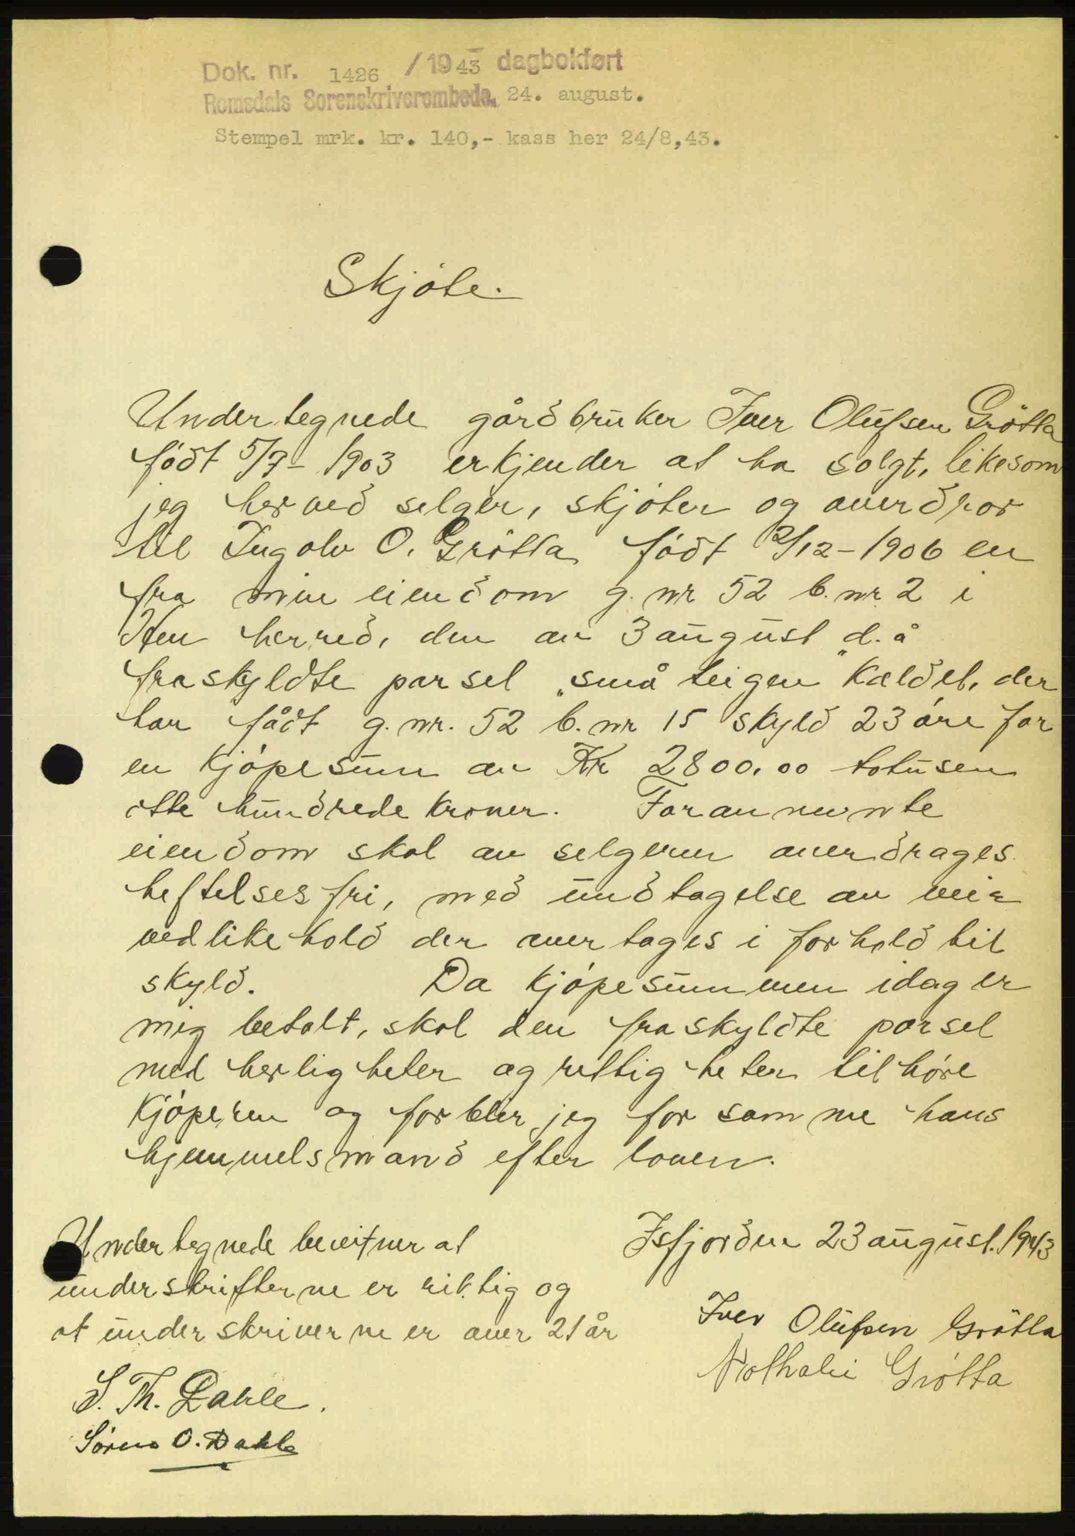 Dok. nr. 1426 / 1943 dagbokført
Romsdals Sorenskriverembede, 24. august.
Stempel mrk. kr. 140,- kass her 24/8,43.
Skjøte.
Undertegnede gårdbruker Iver Olufsen Grötta
født 5/7- 1903 erkjender at ha solgt, likesom
jeg herved selger, skjöter og overdrar
til Ingolv O. Grötta født 2/12-1906 en
fra min eiendom g. nr 52 b. nr. 2 i
Hen herred, den av 3 august d. å
fraskyldte parsel "små teigen" kaldet, der
har fådt g. nr. 52 b. nr 15 skyld 23 öre for
en kjöpesum av Kr 2800.00 totusen
otte hundrede kroner. Forannevnte
eiendom skal av selgeren overdrages
heftelsesfri, med undtagelse av vei=
vedlikehold der overtages i forhold til
skyld. Da kjöpesummen idag er
mig betalt, skal den fraskyldte parsel
med herligheter og rettigheter tilhøre
kjöperen og forbler jeg for samme hans
hjemmelsmand efter loven.
Isfjorden 23 august. 1943
Undertegnede bevitner at
underskrifterne er riktig og
at underskriverne er over 21 år
Iver Olufsen Grötta
Nathalie Grötta
S. Th. Dahle.
Søren O. Dahle